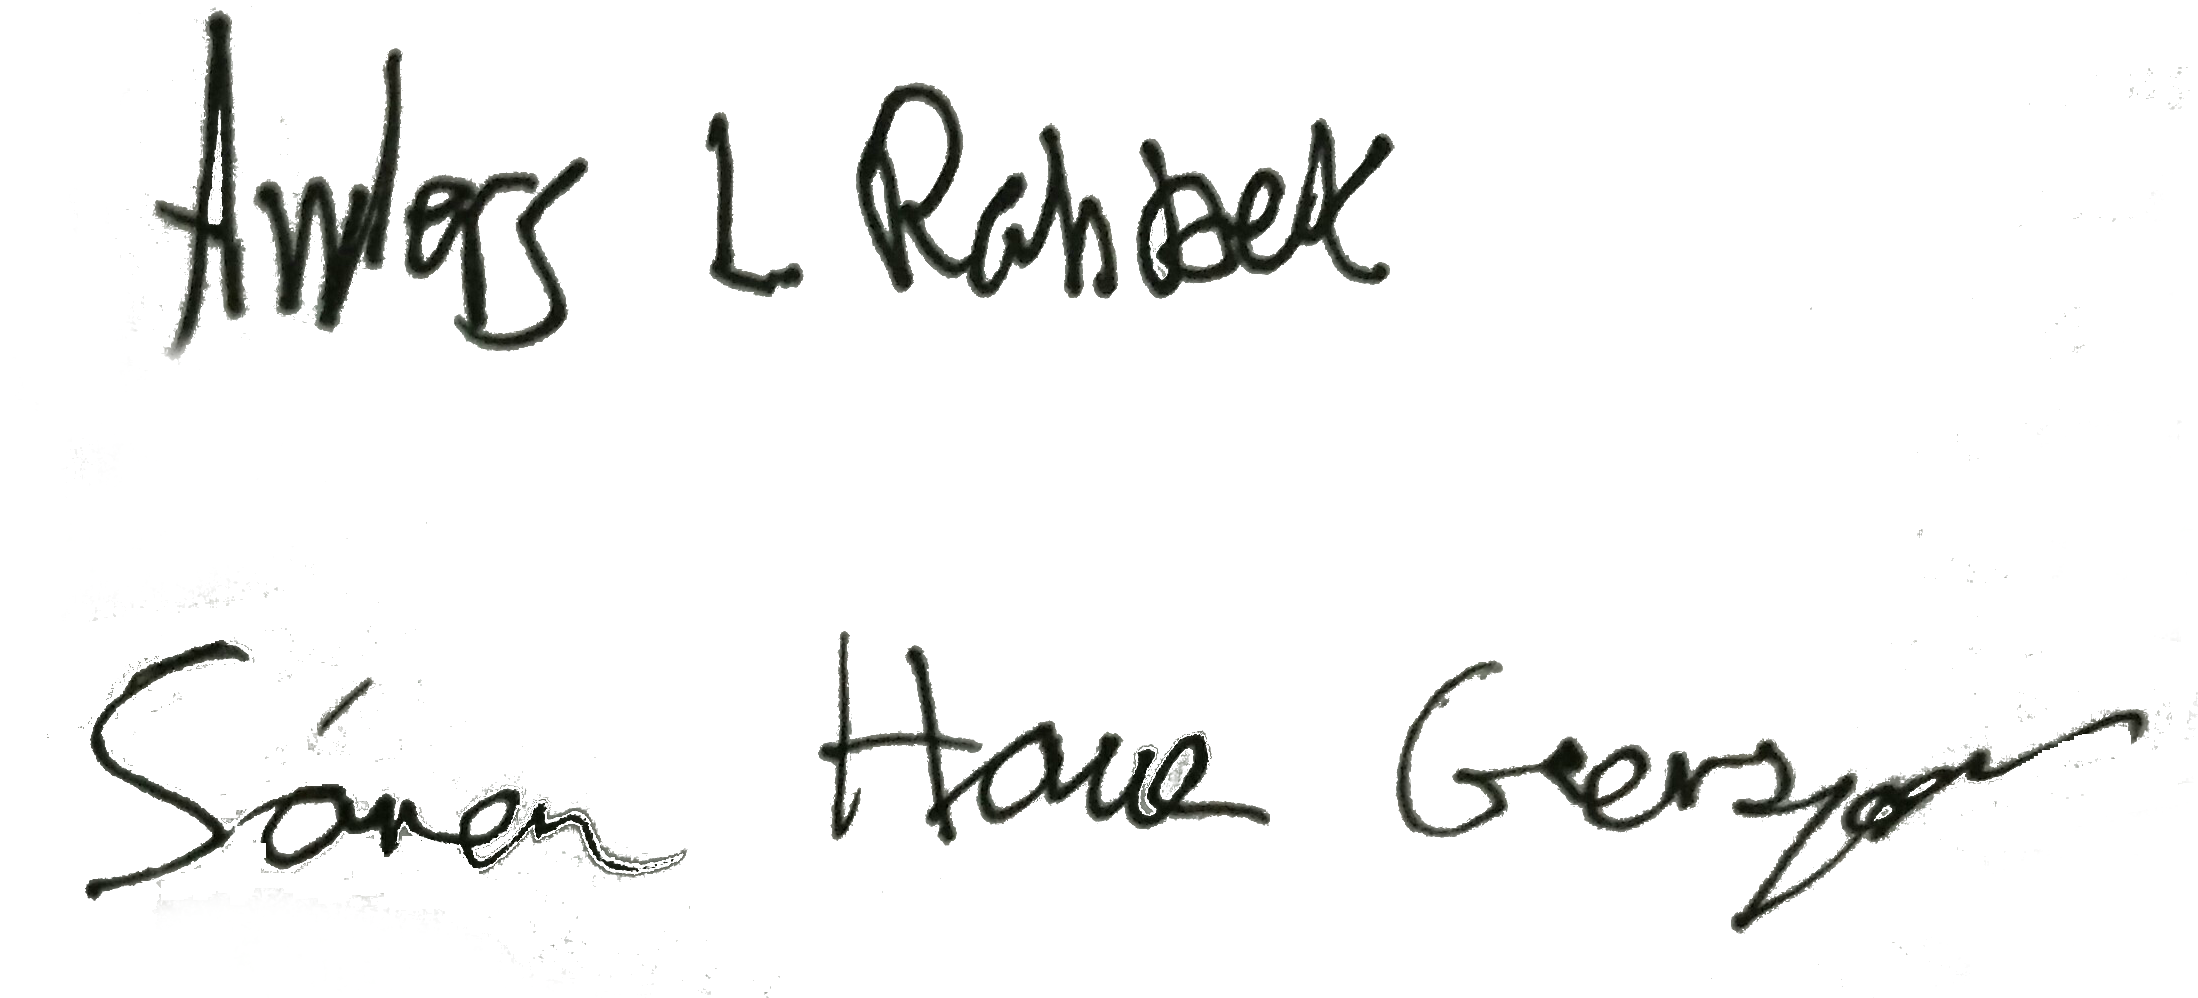 Anders L Rahbek
Sóren Have Gjersø